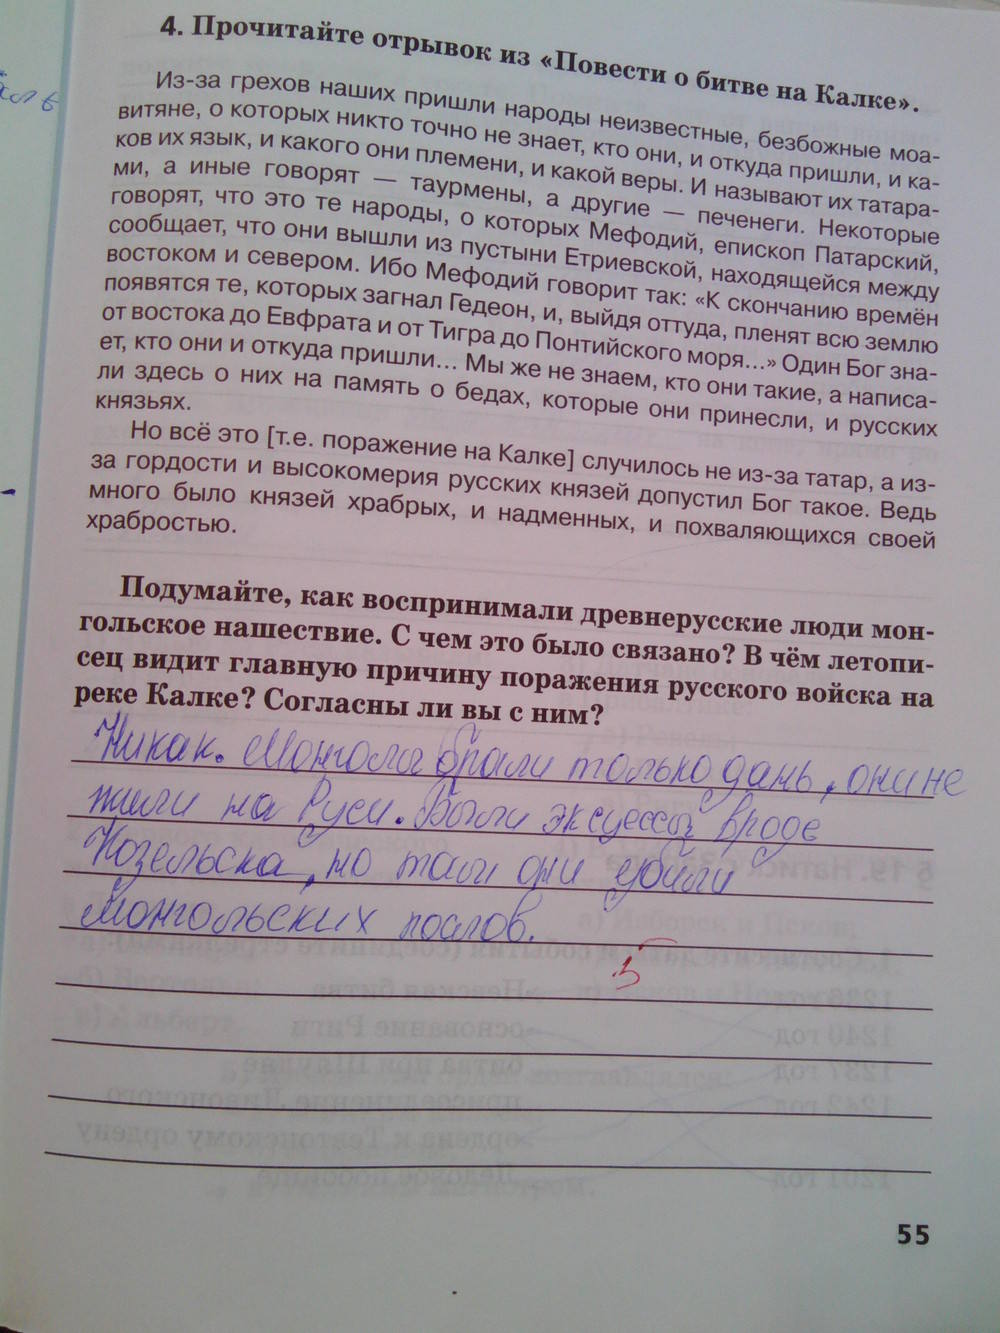 4. Прочитайте отрывок из «Повести о битве на Калке».
Из-за грехов наших пришли народы неизвестные, безбожные моа-
витяне, о которых никто точно не знает, кто они, и откуда пришли, и ка-
ков их язык, и какого они племени, и какой веры. И называют их татара-
ми, а иные говорят — таурмены, а другие — печенеги. Некоторые
говорят, что это те народы, о которых Мефодий, епископ Патарский,
сообщает, что они вышли из пустыни Етриевской, находящейся между
востоком и севером. Ибо Мефодий говорит так: «К скончанию времён
появятся те, которых загнал Гедеон, и, выйдя оттуда, пленят всю землю
от востока до Евфрата и от Тигра до Понтийского моря...» Один Бог зна-
ет, кто они и откуда пришли... Мы же не знаем, кто они такие, а написа-
ли здесь о них на память о бедах, которые они принесли, и русских
князьях.
Но всё это [т.е. поражение на Калке] случилось не из-за татар, а из-
за гордости и высокомерия русских князей допустил Бог такое. Ведь
много было князей храбрых, и надменных, и похваляющихся своей
храбростью.
Подумайте, как воспринимали древнерусские люди мон-
гольское нашествие. С чем это было связано? В чём летопи-
сец видит главную причину поражения русского войска на
реке Калке? Согласны ли вы с ним?
Никак. Монголы брали только дань, они не
жили на Руси. Были эксцессы вроде
Козельска, но там они убили
монгольских послов.
5
55